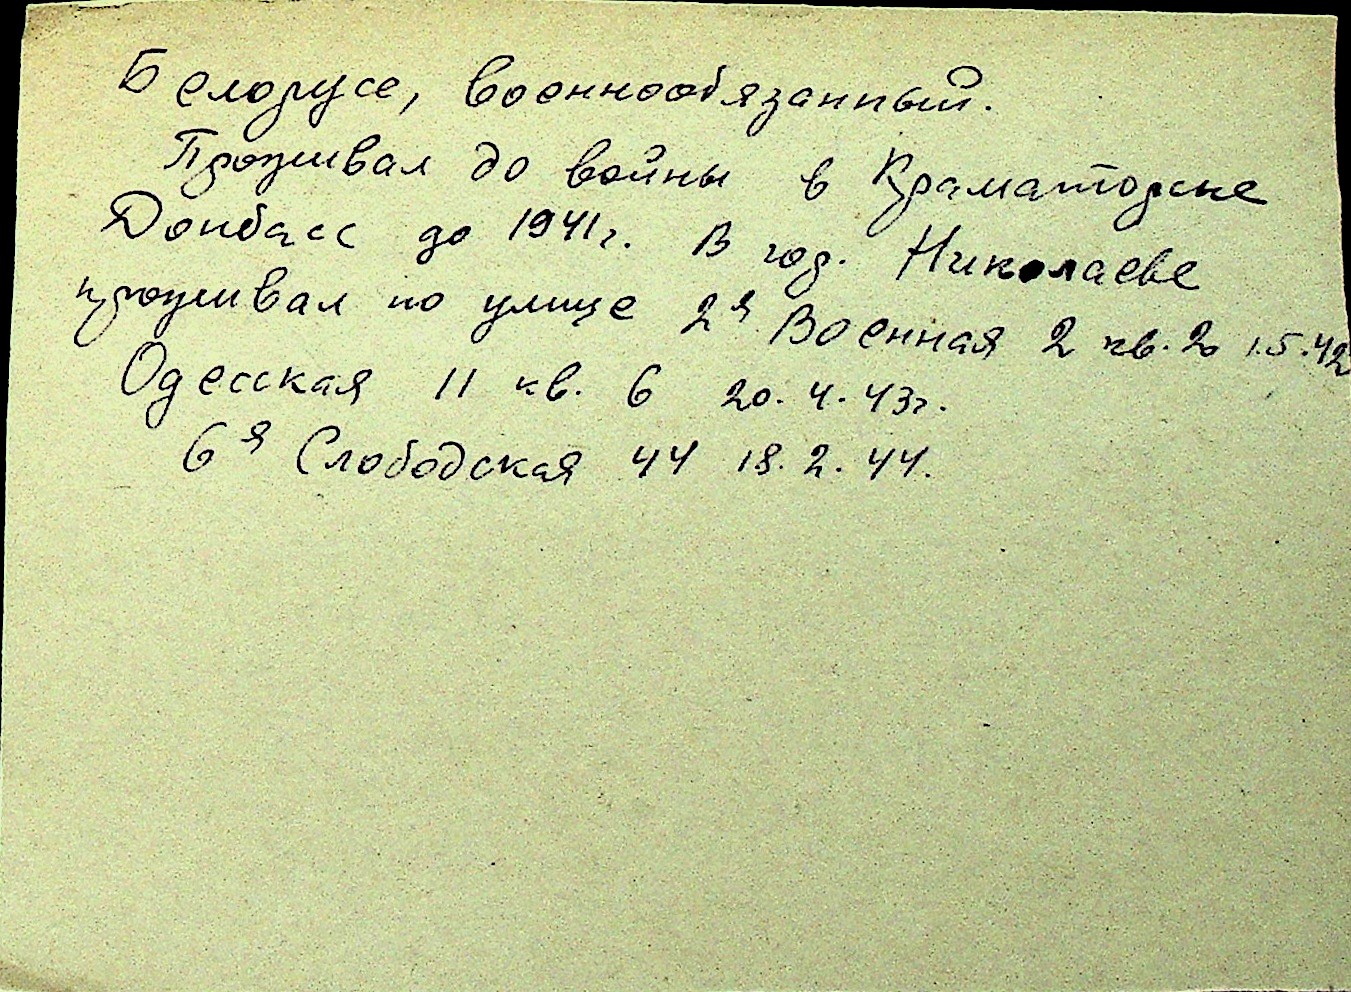 Белорусс, военнообязанный.
Проживал до войны в Краматорске
Донбасс до 1941г. В гор. Николаеве
проживал по улице 2я Военная 2 кв. 20 1.5.42
Одесская 11 кв. 6 20.4.43г.
6я Слободская 44 18.2.44.